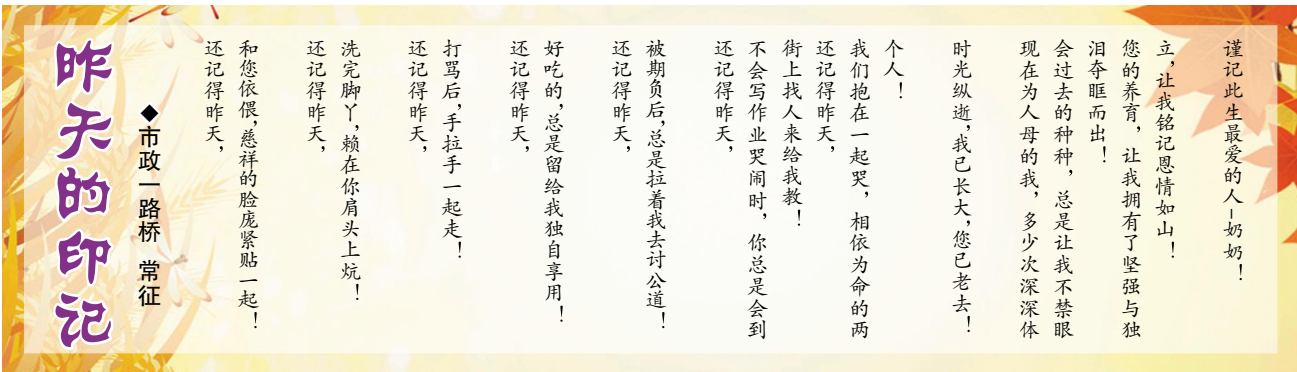 昨天的印记
◆市政一路桥 常征
还记得昨天,
和您依偎,慈祥的脸庞紧贴一起!
还记得昨天,
洗完脚丫,赖在你肩头上炕!
还记得昨天,
打骂后,手拉手一起走!
还记得昨天,
好吃的,总是留给我独自享用!
还记得昨天,
被期负后,总是拉着我去讨公道!
还记得昨天,
不会写作业哭闹时,你总是会到
街上找人来给我教!
还记得昨天,
我们抱在一起哭,相依为命的两
个人!
时光纵逝,我已长大,您已老去!
现在为人母的我,多少次深深体
会过去的种种,总是让我不禁眼
泪夺眶而出!
您的养育,让我拥有了坚强与独
立,让我铭记恩情如山!
谨记此生最爱的人-奶奶!